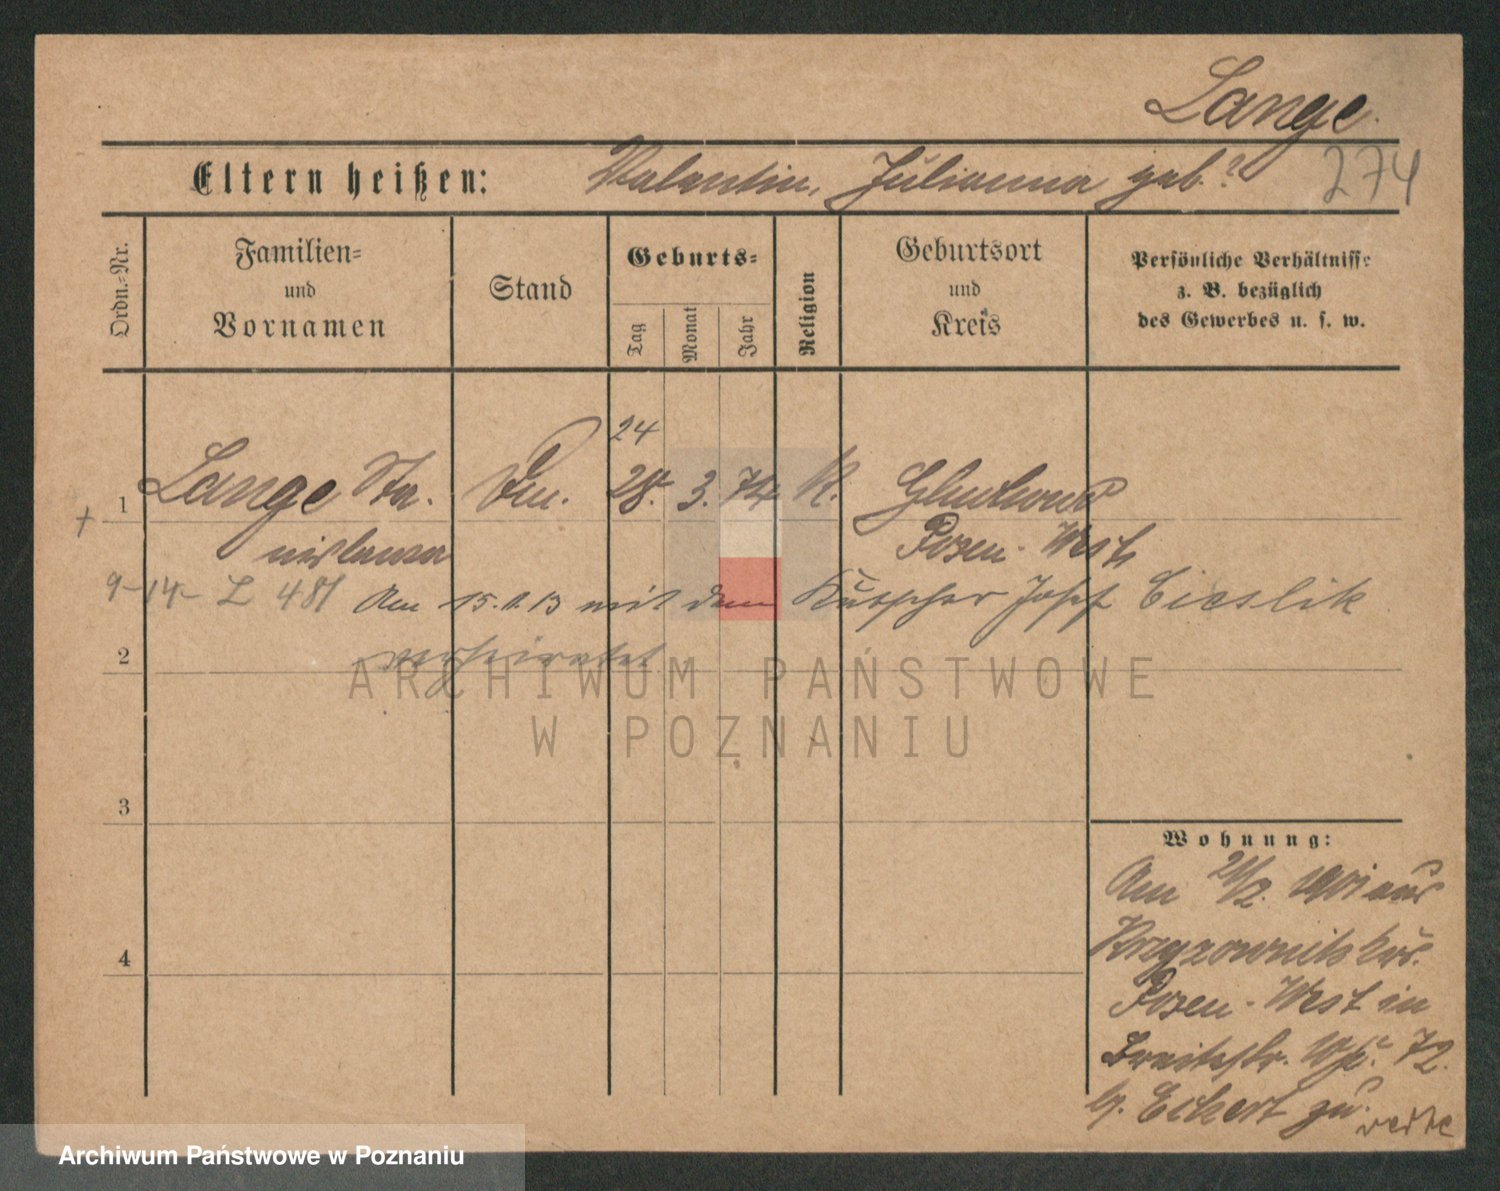 Lange.
Eltern heißen: Valentin, Julianna geb. ?
274
Ordn.=Nr.
Familien=
und
Vornamen
Stand
Geburts=
Tag
Monat
Jahr
Religion
Geburtsort
und
Kreis
Persönliche Verhältnisse
z. B. bezüglich
des Gewerbes u. s. w.
24
1 Lange Sta. 28. 3. 74 K.
nislawa Posen-West
9-14- L 481 Am 15. 11. 13 mit dem Kutscher Josef Cieslik
verheiratet
2
ARCHIWUM PAŃSTWOWE
W POZNANIU
3
4
Wohnung:
Am 21/2. 1901 aus
Posen-West in
Breitestr. No. 72.
b. Eckert zu.
Archiwum Państwowe w Poznaniu